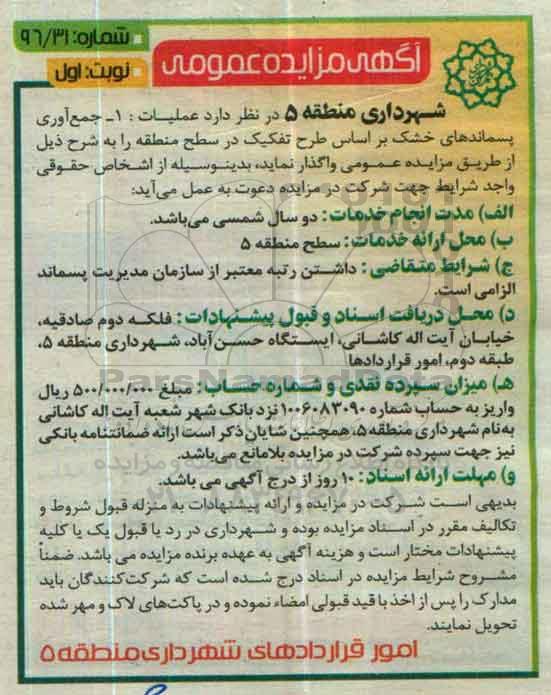 شماره: ۹۶/۳۱
نوبت: اول
آگهی مزایده عمومی
شهرداری منطقه ۵ در نظر دارد عملیات : ۱- جمع‌آوری
پسماندهای خشک بر اساس طرح تفکیک در سطح منطقه را به شرح ذیل
از طریق مزایده عمومی واگذار نماید، بدینوسیله از اشخاص حقوقی
واجد شرایط جهت شرکت در مزایده دعوت به عمل می‌آید:
الف) مدت انجام خدمات: دو سال شمسی می‌باشد.
ب) محل ارائه خدمات: سطح منطقه ۵
ج) شرایط متقاضی: داشتن رتبه معتبر از سازمان مدیریت پسماند
الزامی است.
د) محل دریافت اسناد و قبول پیشنهادات: فلکه دوم صادقیه،
خیابان آیت اله کاشانی، ایستگاه حسن‌آباد، شهرداری منطقه ۵،
طبقه دوم، امور قراردادها
هـ) میزان سپرده نقدی و شماره حساب: مبلغ ۵۰۰/۰۰۰/۰۰۰ ریال
واریز به حساب شماره ۱۰۰۶۰۸۳۰۹۰ نزد بانک شهر شعبه آیت اله کاشانی
به‌نام شهرداری منطقه ۵، همچنین شایان ذکر است ارائه ضمانتنامه بانکی
نیز جهت سپرده شرکت در مزایده بلامانع می‌باشد.
و) مهلت ارائه اسناد: ۱۰ روز از درج آگهی می باشد.
بدیهی است شرکت در مزایده و ارائه پیشنهادات به منزله قبول شروط و
تکالیف مقرر در اسناد مزایده بوده و شهرداری در رد یا قبول یک یا کلیه
پیشنهادات مختار است و هزینه آگهی به عهده برنده مزایده می باشد. ضمناً
مشروح شرایط مزایده در اسناد درج شده است که شرکت‌کنندگان باید
مدارک را پس از اخذ با قید قبولی امضاء نموده و در پاکت‌های لاک و مهر شده
تحویل نمایند.
امور قراردادهای شهرداری منطقه ۵
ParsNamadData